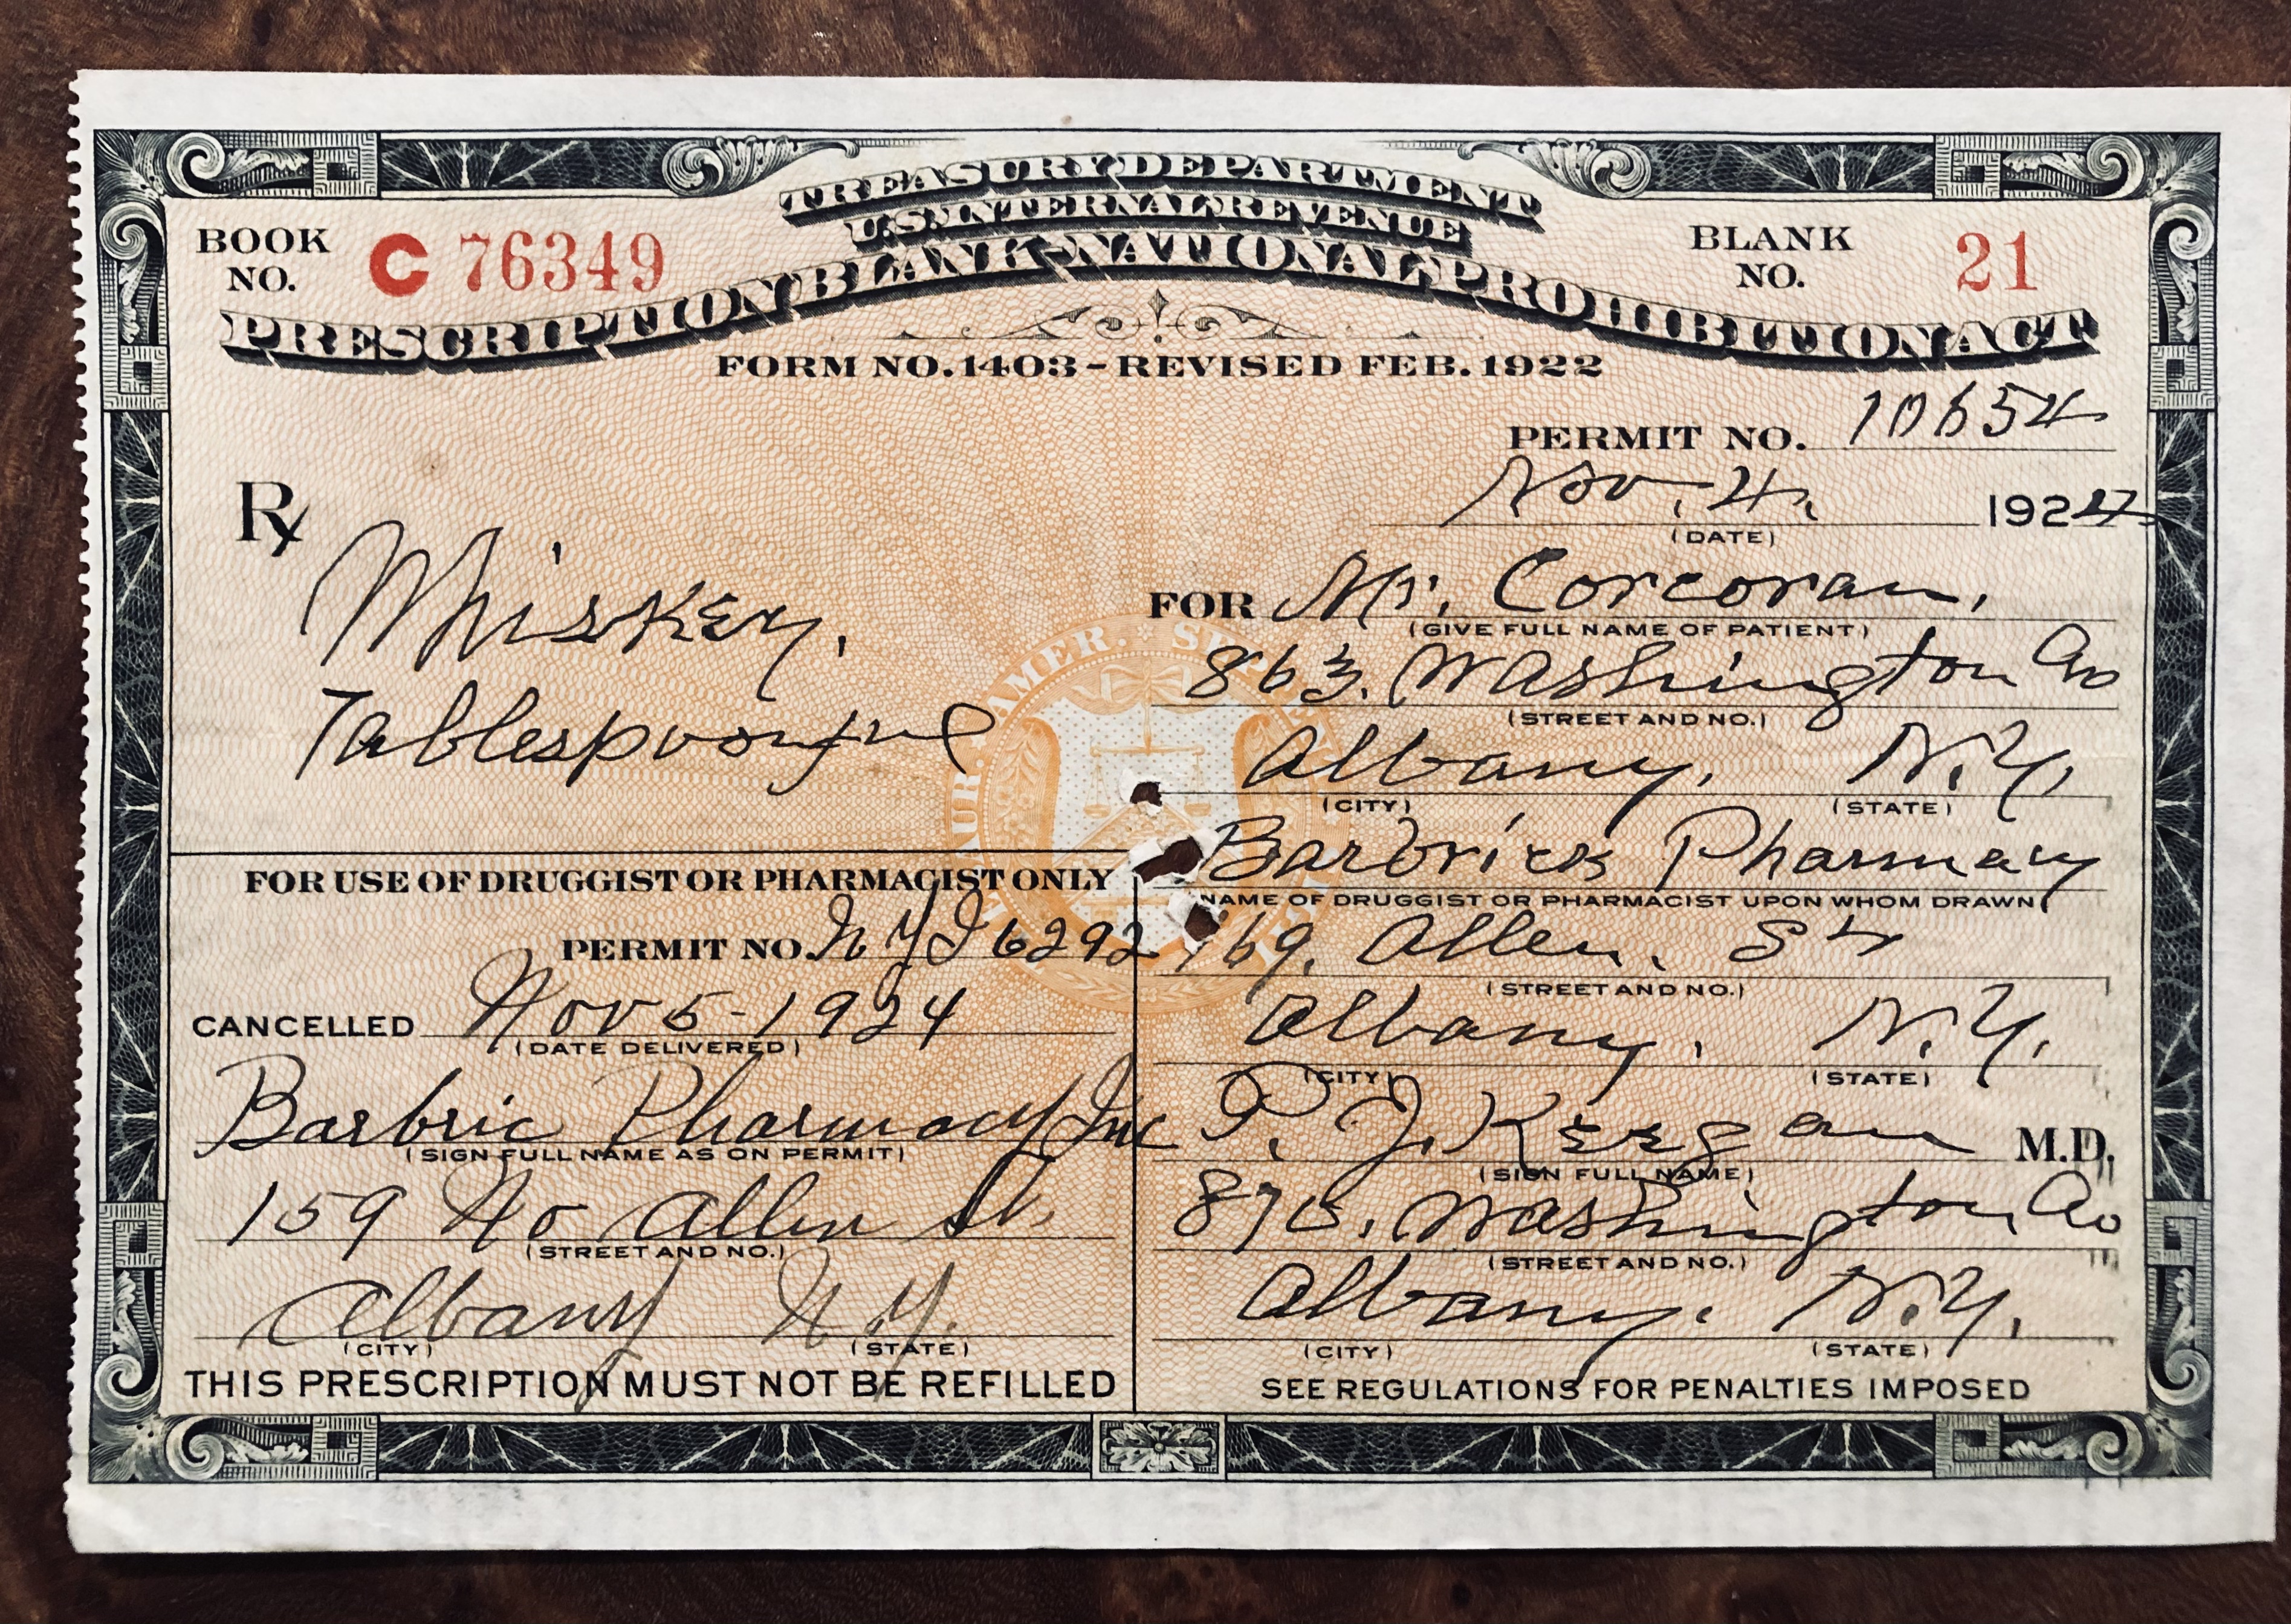 TREASURY DEPARTMENT
U.S. INTERNAL REVENUE
PRESCRIPTION BLANK-NATIONAL PROHIBITION ACT
BOOK NO. C 76349
BLANK NO. 21
FORM NO. 1403-REVISED FEB. 1922
PERMIT NO. 10654
Nov. 4. 1924
(DATE)
Rx
Whiskey.
Tablespoonful
FOR Mr. Corcoran.
(GIVE FULL NAME OF PATIENT)
863. Washington Av
(STREET AND NO.)
Albany, N.Y.
(CITY) (STATE)
Barbrick Pharmacy
NAME OF DRUGGIST OR PHARMACIST UPON WHOM DRAWN
169. Allen. St
(STREET AND NO.)
Albany. N.Y.
(CITY) (STATE)
P. J. Keegan M.D.
(SIGN FULL NAME)
Washington Av
(STREET AND NO.)
Albany. N.Y.
(CITY) (STATE)
SEE REGULATIONS FOR PENALTIES IMPOSED
FOR USE OF DRUGGIST OR PHARMACIST ONLY
PERMIT NO. 6292
CANCELLED Nov 5-1924
(DATE DELIVERED)
Barbric Pharmacy Inc
(SIGN FULL NAME AS ON PERMIT)
159 No Allen St.
(STREET AND NO.)
Albany N.Y.
(CITY) (STATE)
THIS PRESCRIPTION MUST NOT BE REFILLED